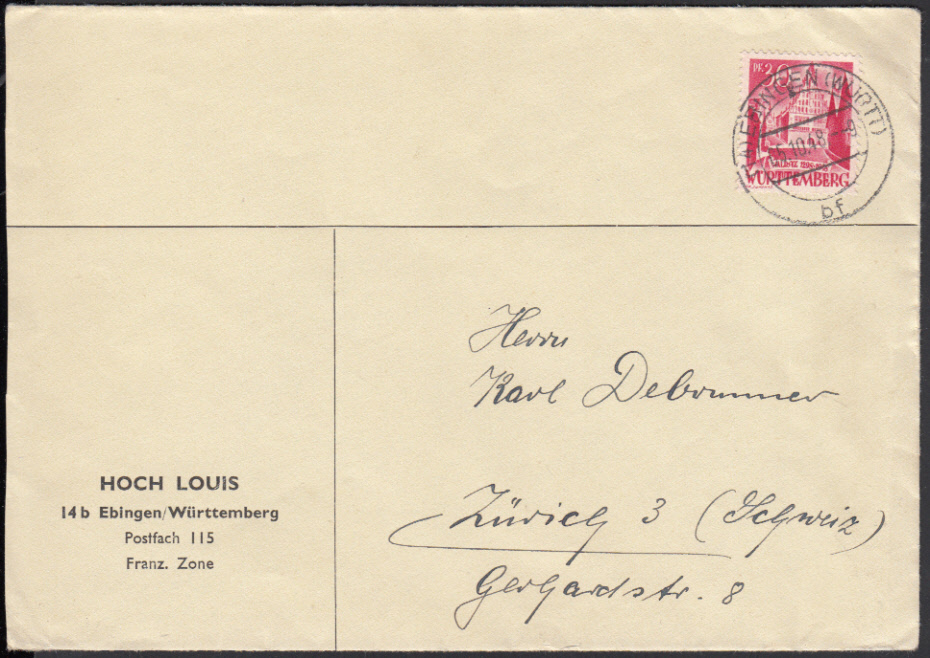 PF. 30
WÜRTTEMBERG
EBINGEN (WÜRTT)
10.48
bf
Herrn
Karl Debrunner
Zürich 3 (Schweiz)
Gerhardstr. 8
HOCH LOUIS
14b Ebingen/Württemberg
Postfach 115
Franz. Zone